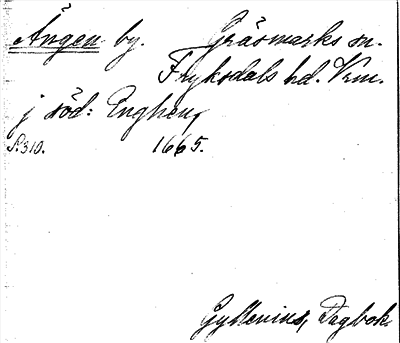 Ängen by. Gräsmarks sn.
Fryksdals hd. Vrm.
j röd: Enghen,
S. 310. 1665.
Gyllenius, Dagbok.